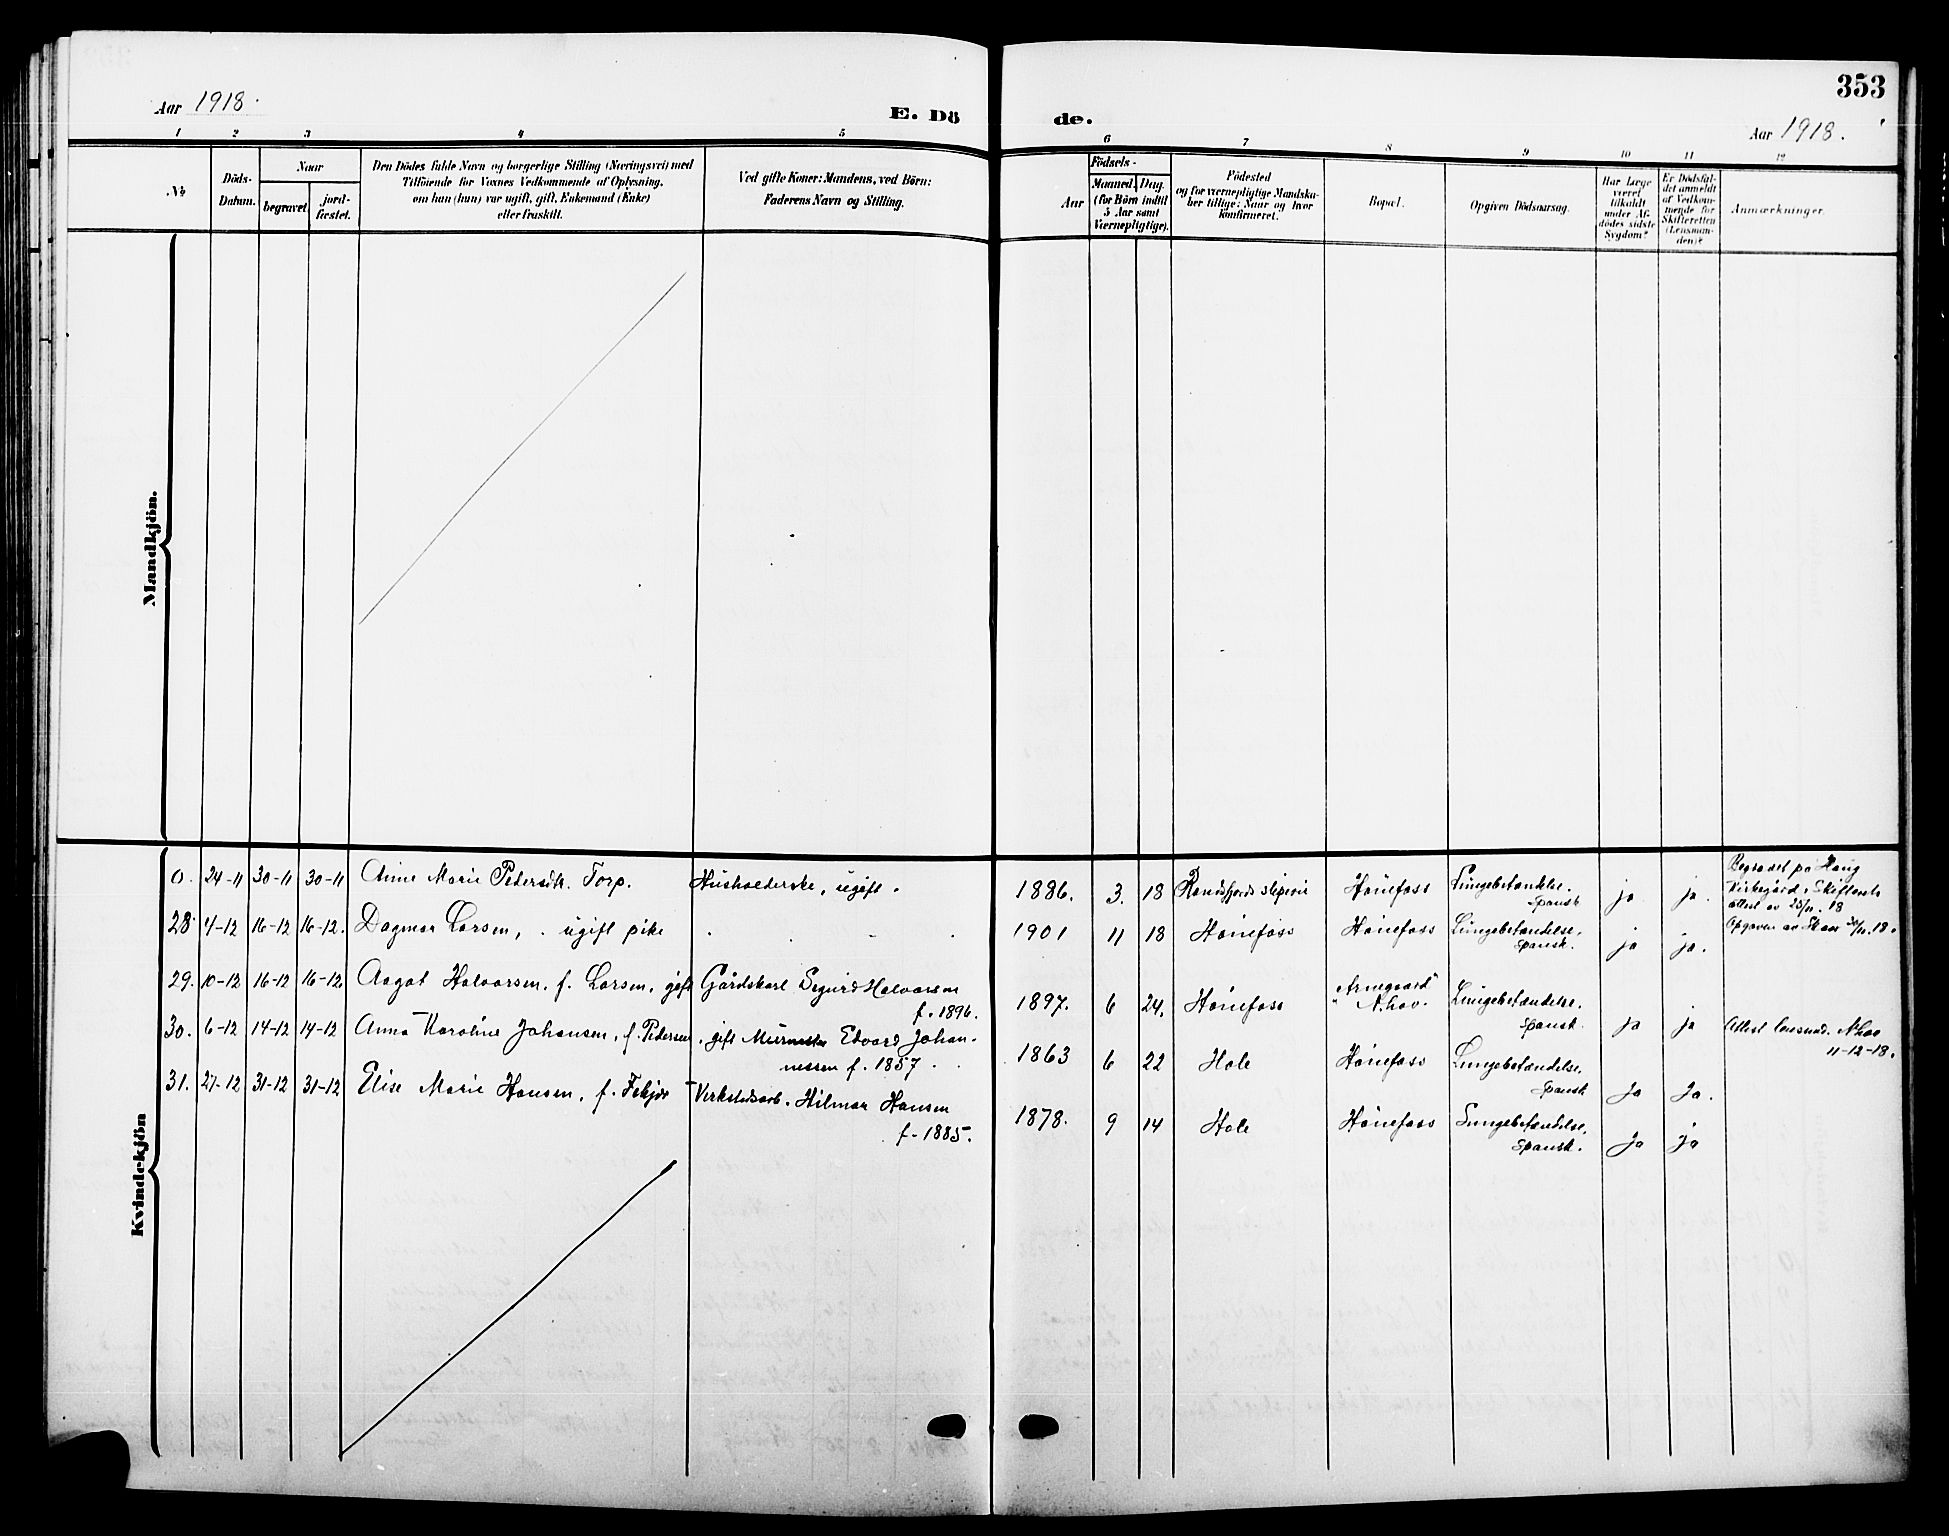 353
Aar 1918.
E. Dö
de.
Aar 1918.
1 2 3 4 5
6 7 8 9 10 11 12
No
Döds-
Datum.
Naar
begravet.
jord-
fæstet.
Den Dödes fulde Navn og borgerlige Stilling (Næringsvei) med
Tilföiende for Voxnes Vedkommende af Oplysning,
om hun (hun) var ugift, gift, Enkemand (Enke)
eller fraskilt.
Ved gifte Koner: Mandens, ved Börn:
Faderens Navn og Stilling.
Födsels-
Aar
Maaned. Dag.
(for Börn indtil
5 Aar samt
Værnepligtige).
Födested
og for værnepligtige Mandska-
ber tillige: Naar og hvor
konfirmeret.
Bopæl.
Opgiven Dödsaarsag.
Har Læge
været
tilkaldt
under Af-
dödes sidste
Sygdom?
Er Dödsfal-
det anmeldt
af Vedkom-
mende for
Skifteretten
(Lensman-
den)?
Anmærkninger.
Mandkjön.
Kvindekjön
0. 24-11 30-11 30-11 Anne Marie Pedersdt. Torp. Husholderske, ugift. 1886. 3. 18 Randsfjords sliperi Hönefoss Lungebetændelse. ja ja.
spansk
Begravet på Haug
Kirkegård. Skifterets
attest av 25/11. 18
Opgaven av 30/11. 18.
28 4-12 16-12 16-12. Dagmar Larsen, ugift pike 1901 11 18 Hönefoss Hönefoss Lungebetændelse, ja ja.
spansk.
29. 10-12 16-12 16-12 Aagot Halvorsen, f. Larsen, gift Gårdskarl Sigurd Halvorsen
f. 1896.
1897. 6 24. Hönefoss "Arnegaard"
N.hov.
Lungebetændelse. ja ja
spansk.
30. 6-12 14-12 14-12 Anna Karoline Johansen, f. Pedersen, gift Murmester Edvard Johan-
nessen f. 1857.
1863 6 22 Hole Hönefoss Lungebetændelse, ja Ja.
spansk
Attest lensmd. N.hov
11-12-18.
31. 27-12 31-12 31-12 Elise Marie Hansen, f. Fekjær Verkstedsarb. Hilmar Hansen
f. 1885.
1878. 9 14 Hole Hönefoss Lungebetændelse, Ja ja
spansk.